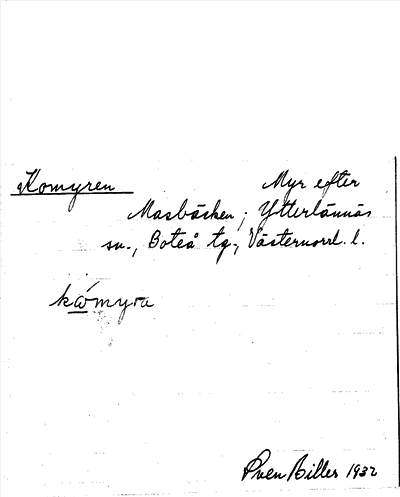 Komyren Myr efter
Masbäcken; Ytterlännäs
sn., Boteå tg., Västernorrl. l.
kómyra
Sven Biller 1932